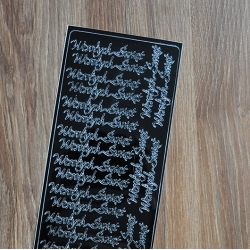 Wesołych Świąt
Wesołych Świąt
Wesołych Świąt
Wesołych Świąt
Wesołych Świąt
Wesołych Świąt
Wesołych Świąt
Wesołych Świąt
Wesołych Świąt
Wesołych Świąt
Wesołych Świąt
Wesołych Świąt
Wesołych Świąt
Wesołych Świąt